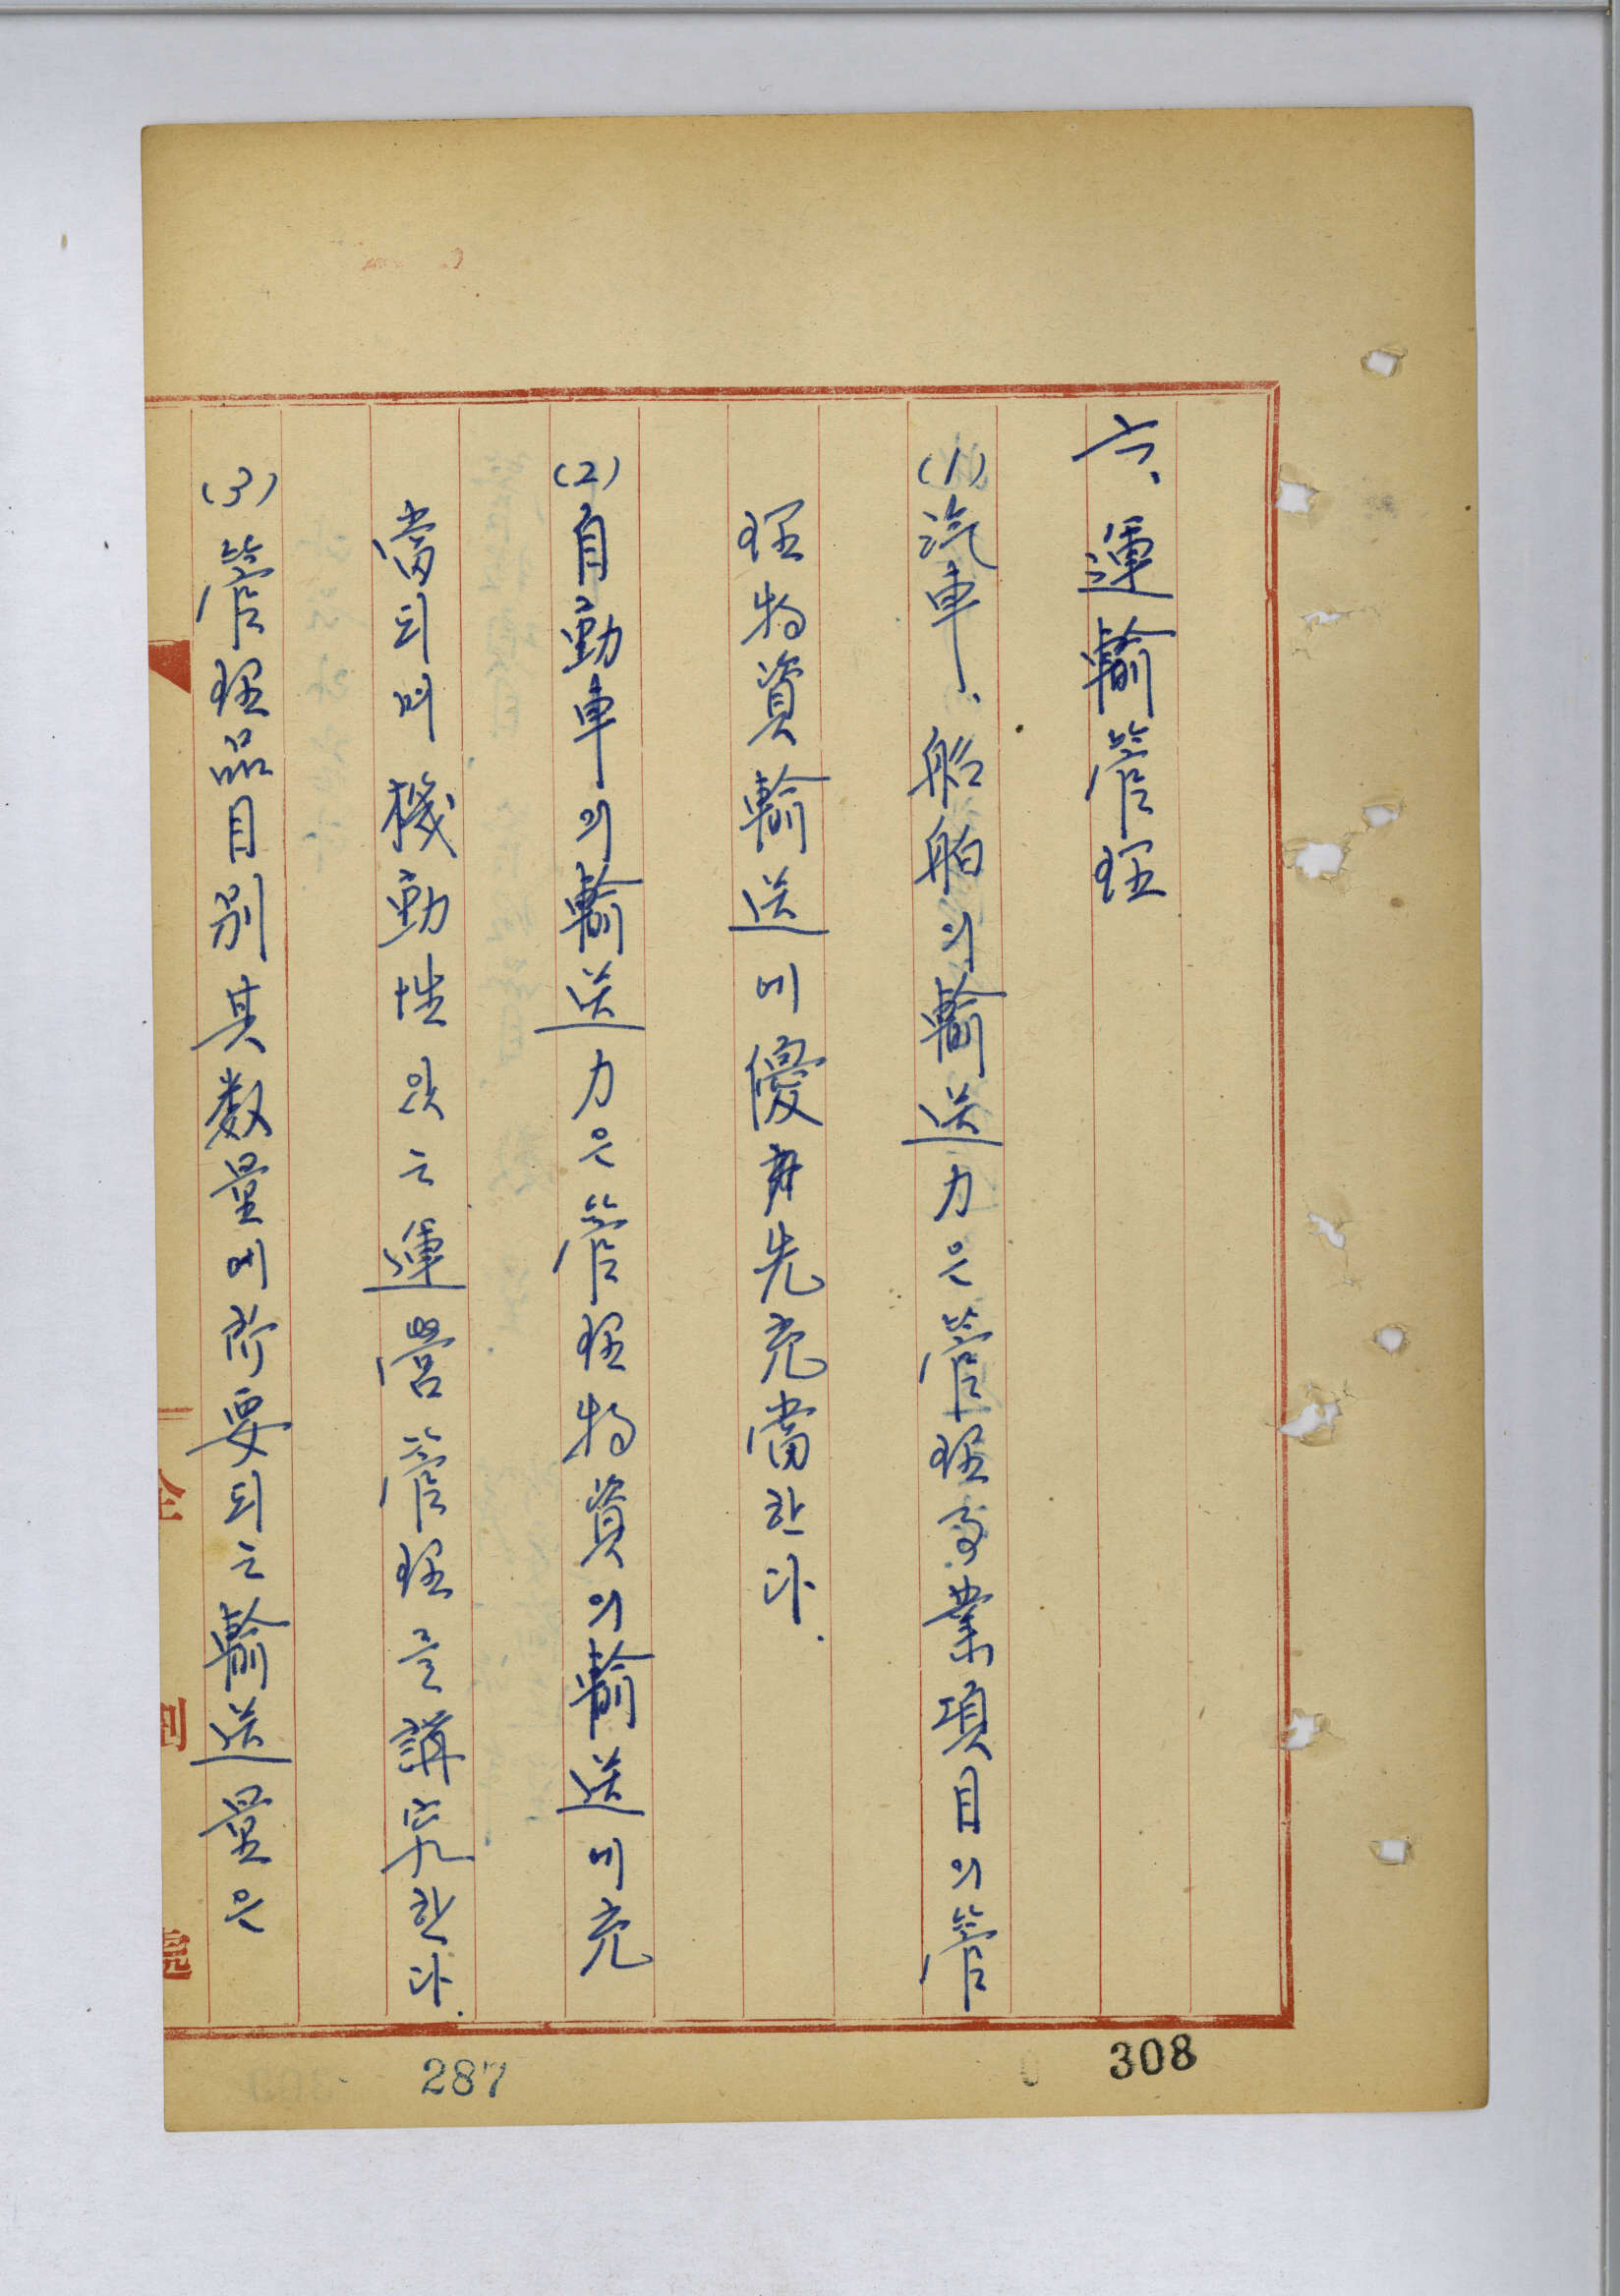 六、運輸管理
(1)汽車、船舶의輸送力은管理業項目의管
理物資輸送에優先充當한다.
(2)自動車의輸送力은管理物資의輸送에充
當되며機動性있는運營管理를講究한다.
(3)管理品目別其数量에所要되는輸送量은
308
287